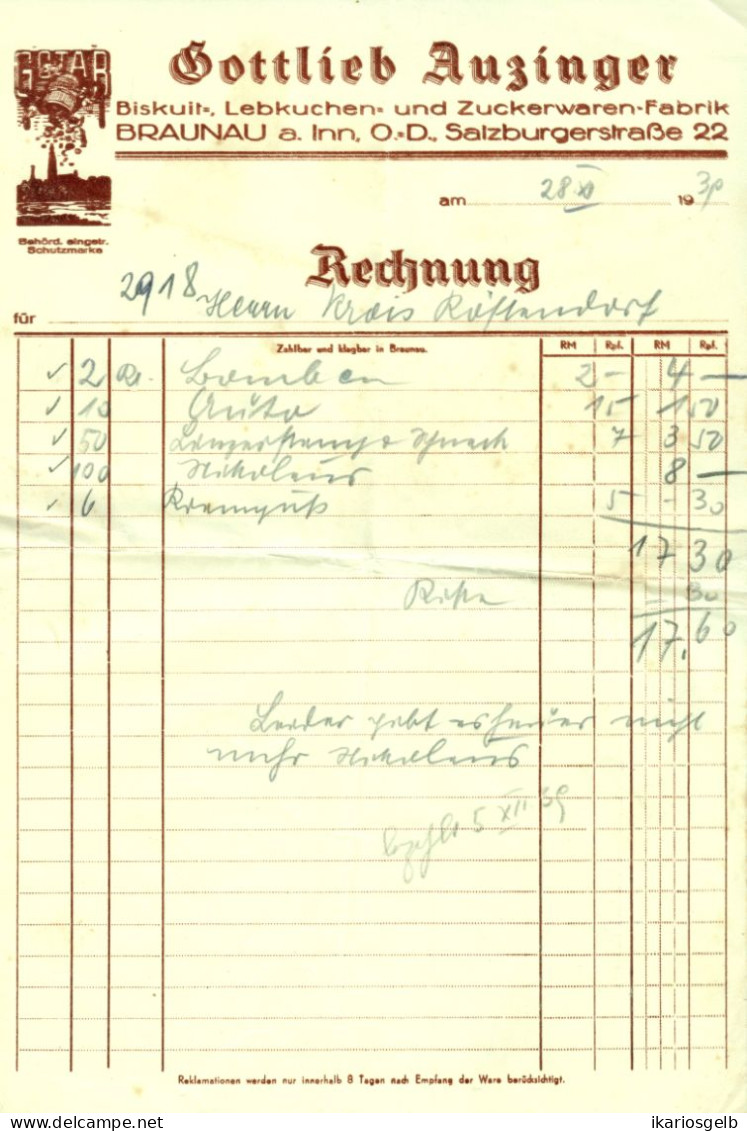 Gottlieb Auzinger
Biskuit-, Lebkuchen- und Zuckerwaren-Fabrik
BRAUNAU a. Inn, O.-D., Salzburgerstraße 22
Behörd. eingetr.
Schutzmarke
am 28 XI 1939
Rechnung
2918
für Herrn Krois Köstendorf
Zahlbar und klagbar in Braunau. RM Rpf. RM Rpf.
2 Bomben 2 – 4 —
10 Auto 15 1 50
50 7 3 50
100 Nikolaus 8 —
6 5 - 30
17 30
30
17.60
Leider gibt es heuer nicht
mehr Nikolaus
bezahlt 5 XII 39
Reklamationen werden nur innerhalb 8 Tagen nach Empfang der Ware berücksichtigt.
delcampe.net
ikariosgelb